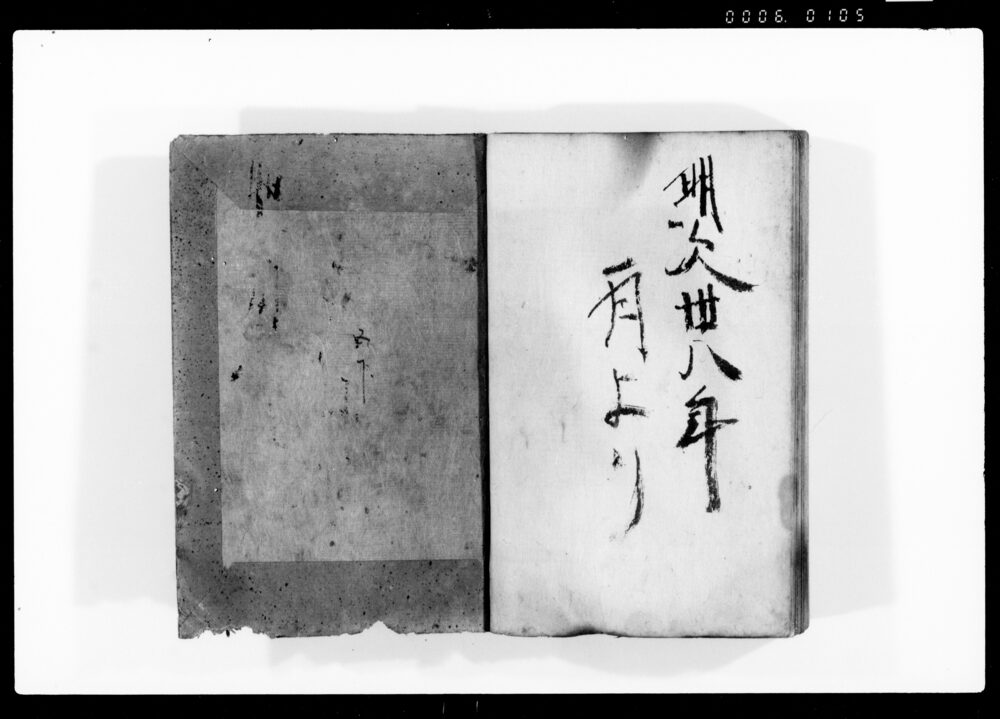 0006. 0105
明次丗八年
一月より